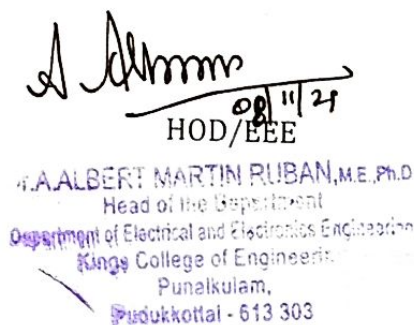 08/11/21
HOD/EEE
.A.ALBERT MARTIN RUBAN, M.E.,Ph.D
Head of the Department
Department of Electrical and Electronics Engineering
Kings College of Engineerin
Punalkulam,
Pudukkottai - 613 303